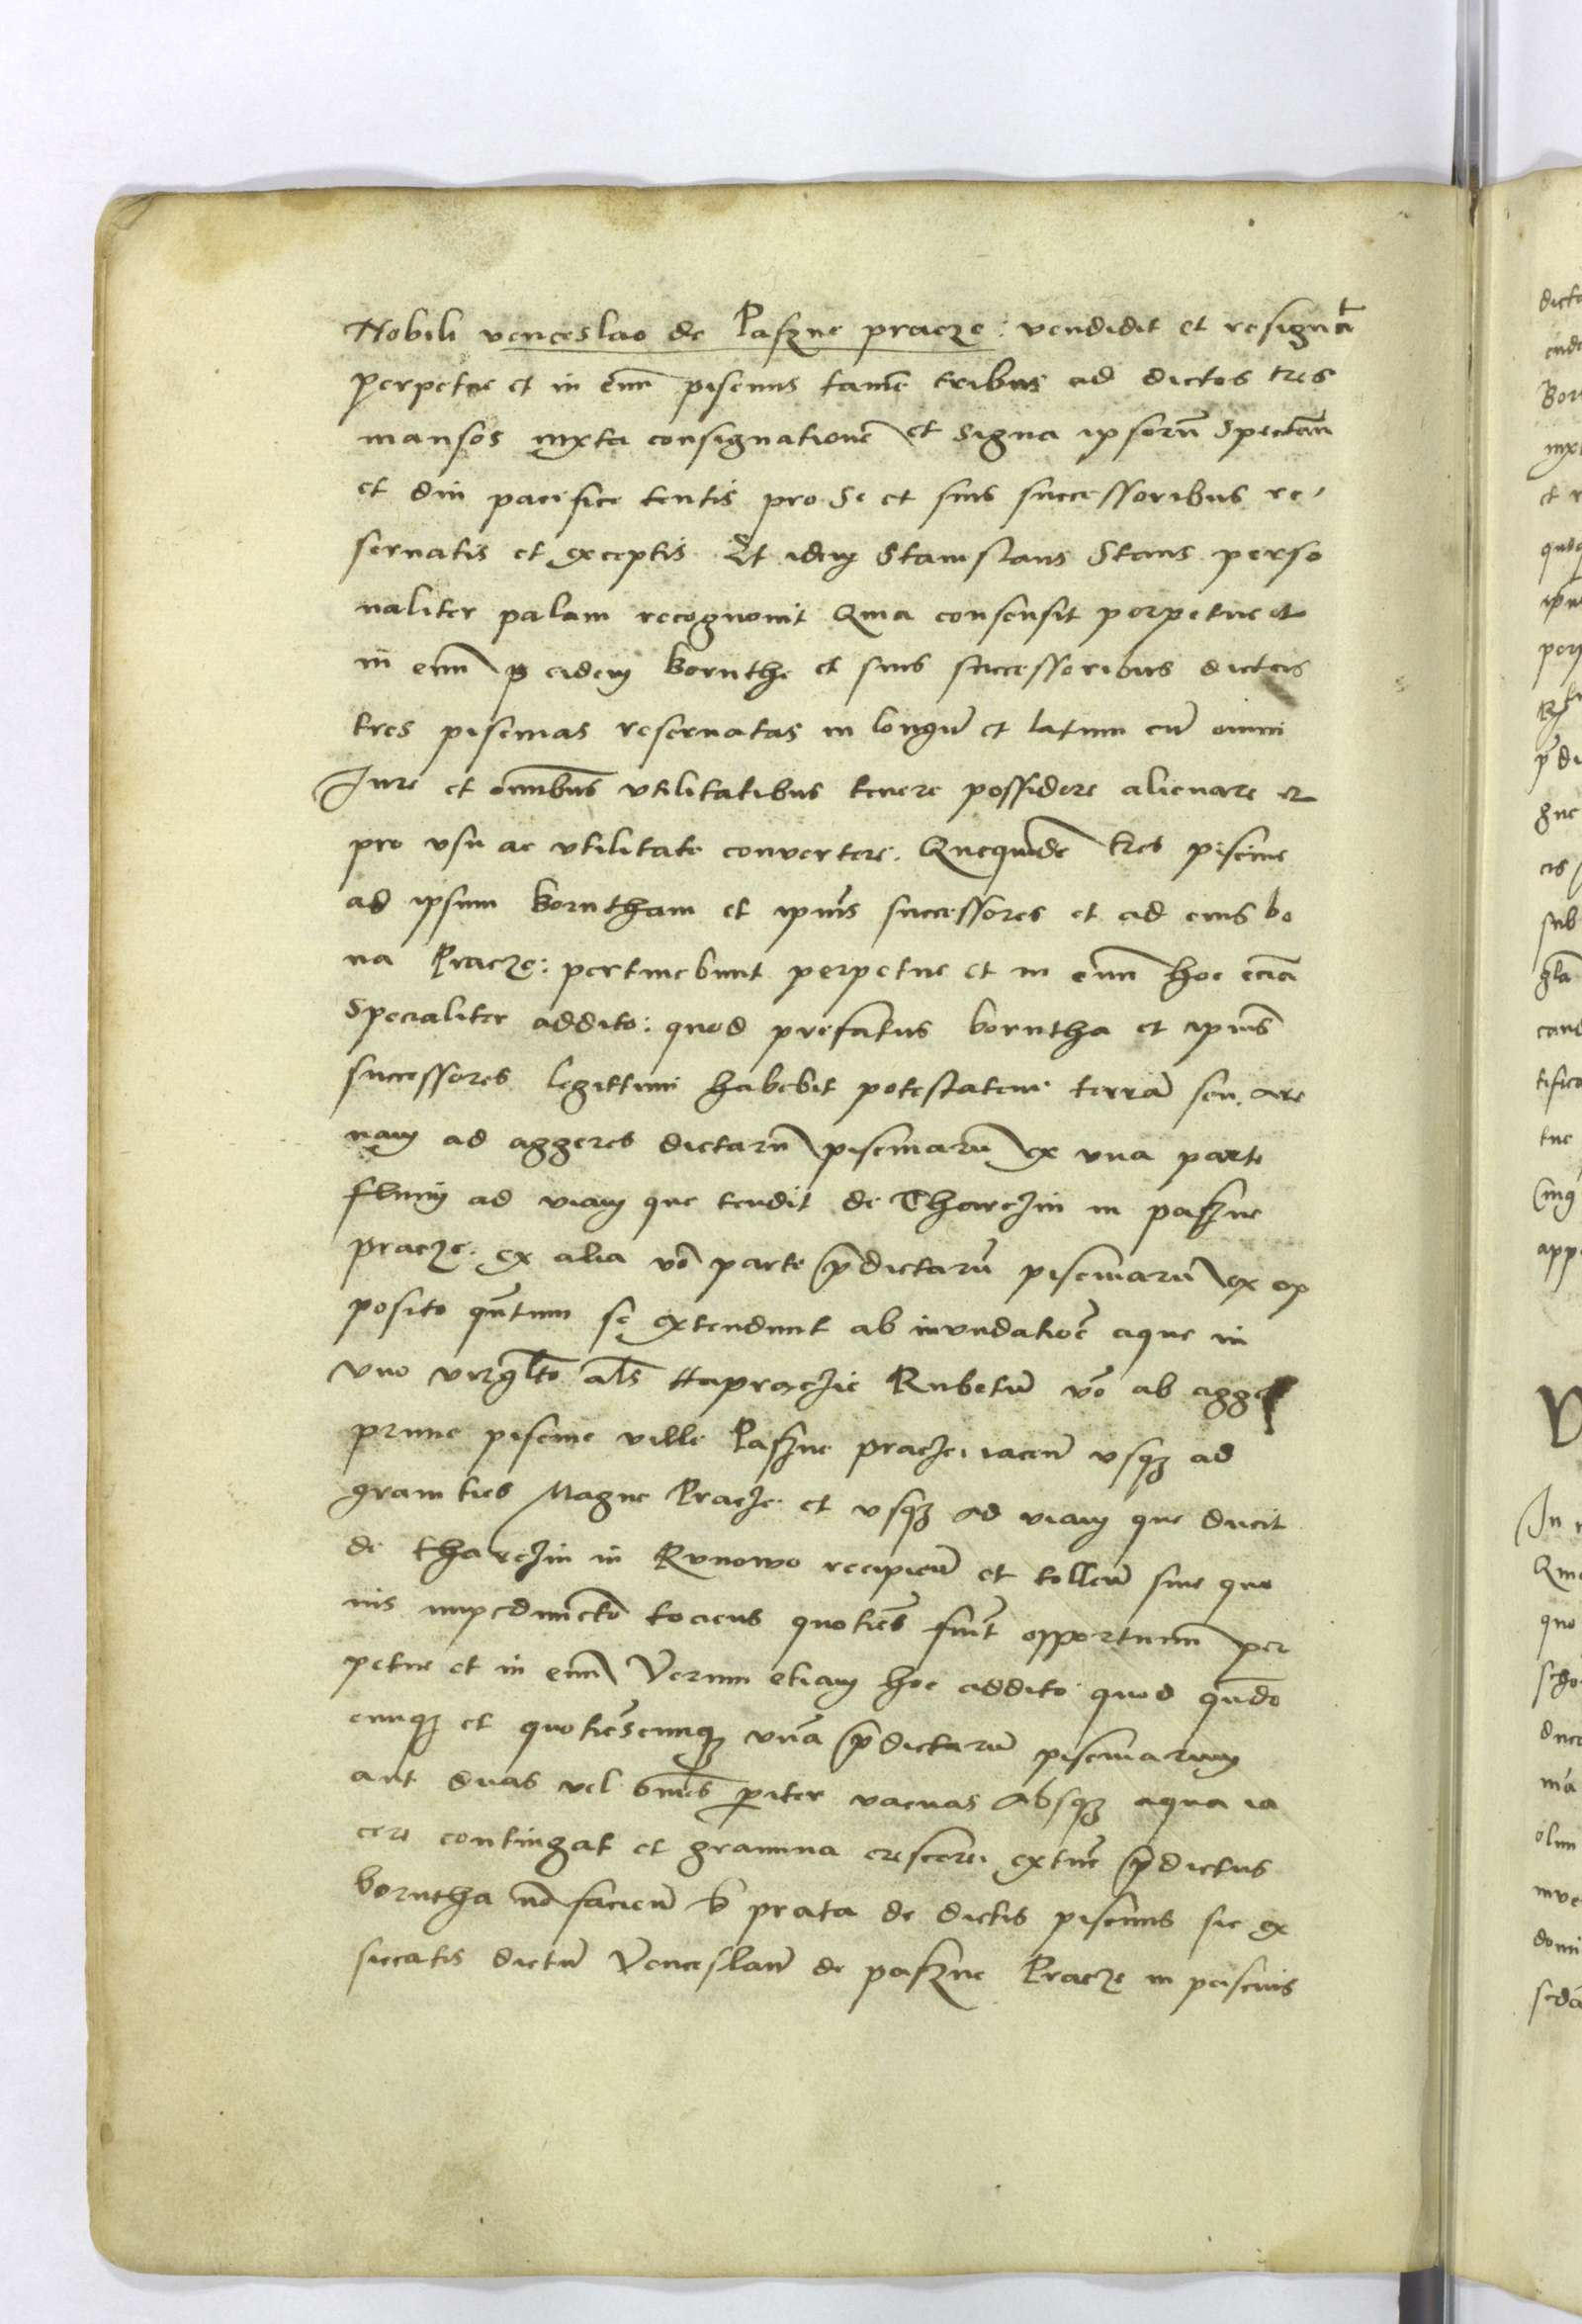 Nobili venceslao de Paszne pracze: vendidit et resignāt
perpetue et in eūū piscinis tamē tribus ad dictos tres
mansos iuxta consignationē et signa ipsorū Spectān
et diu pacifice tentis pro se et suis successoribus re-
seruatis et exceptis Et idem Stanislaus Stans perso
naliter palam recognouit Quia consensit perpetue et
in eūū ꝑ eidem boruthe et suis successoribus dictas
tres piscinas reseruatas in longū et latum cū omni
Iure et om̄ibus vtilitatibus tenere possidere alienare et
pro vsu ac vtilitate convertere. Quequidē tres piscine
ad ipsum borutham et ip̄ius successores et ad eius bo
na Pracze: pertinebunt perpetue et in eūū hoc eciā
Specialiter addito: quod prefatus borutha et ip̄ius
successores legittimi habebit potestatem terrā seu are
nam ad aggeres dictarū piscinarū ex vna parte
fluuij ad viam que tendit de Tharczin in paszne
pracze. ex alia vō parte p̄dictarū piscinarū ex op
posito qūtum se extendunt ab invndatiōe aque in
vno virgl̄to als Rubetū vō ab agge
prime piscine ville Paszne pracze iacen̄ vsqꝫ ad
granities Magne Pracze et vsqꝫ ad viam que ducit
de tharczin in Runowo recipien̄ et tollen̄ sine quo
uis impedim̄to tociens quotiēs fuīt opportunū per
petue et in eūū Verum etiam hoc addito quod qn̄do
cunqꝫ et quotiēscunqꝫ vnā p̄dictarū piscinarum
aut duas vel om̄es pariter vacuas Absqꝫ aqua ia
cere contingat et gramina crescere extūc p̄dictus
borutha nō facien̄ prata de dictis piscinis sic ex
siccatis dictū Venceslaū de paszne Pracze in pascuis